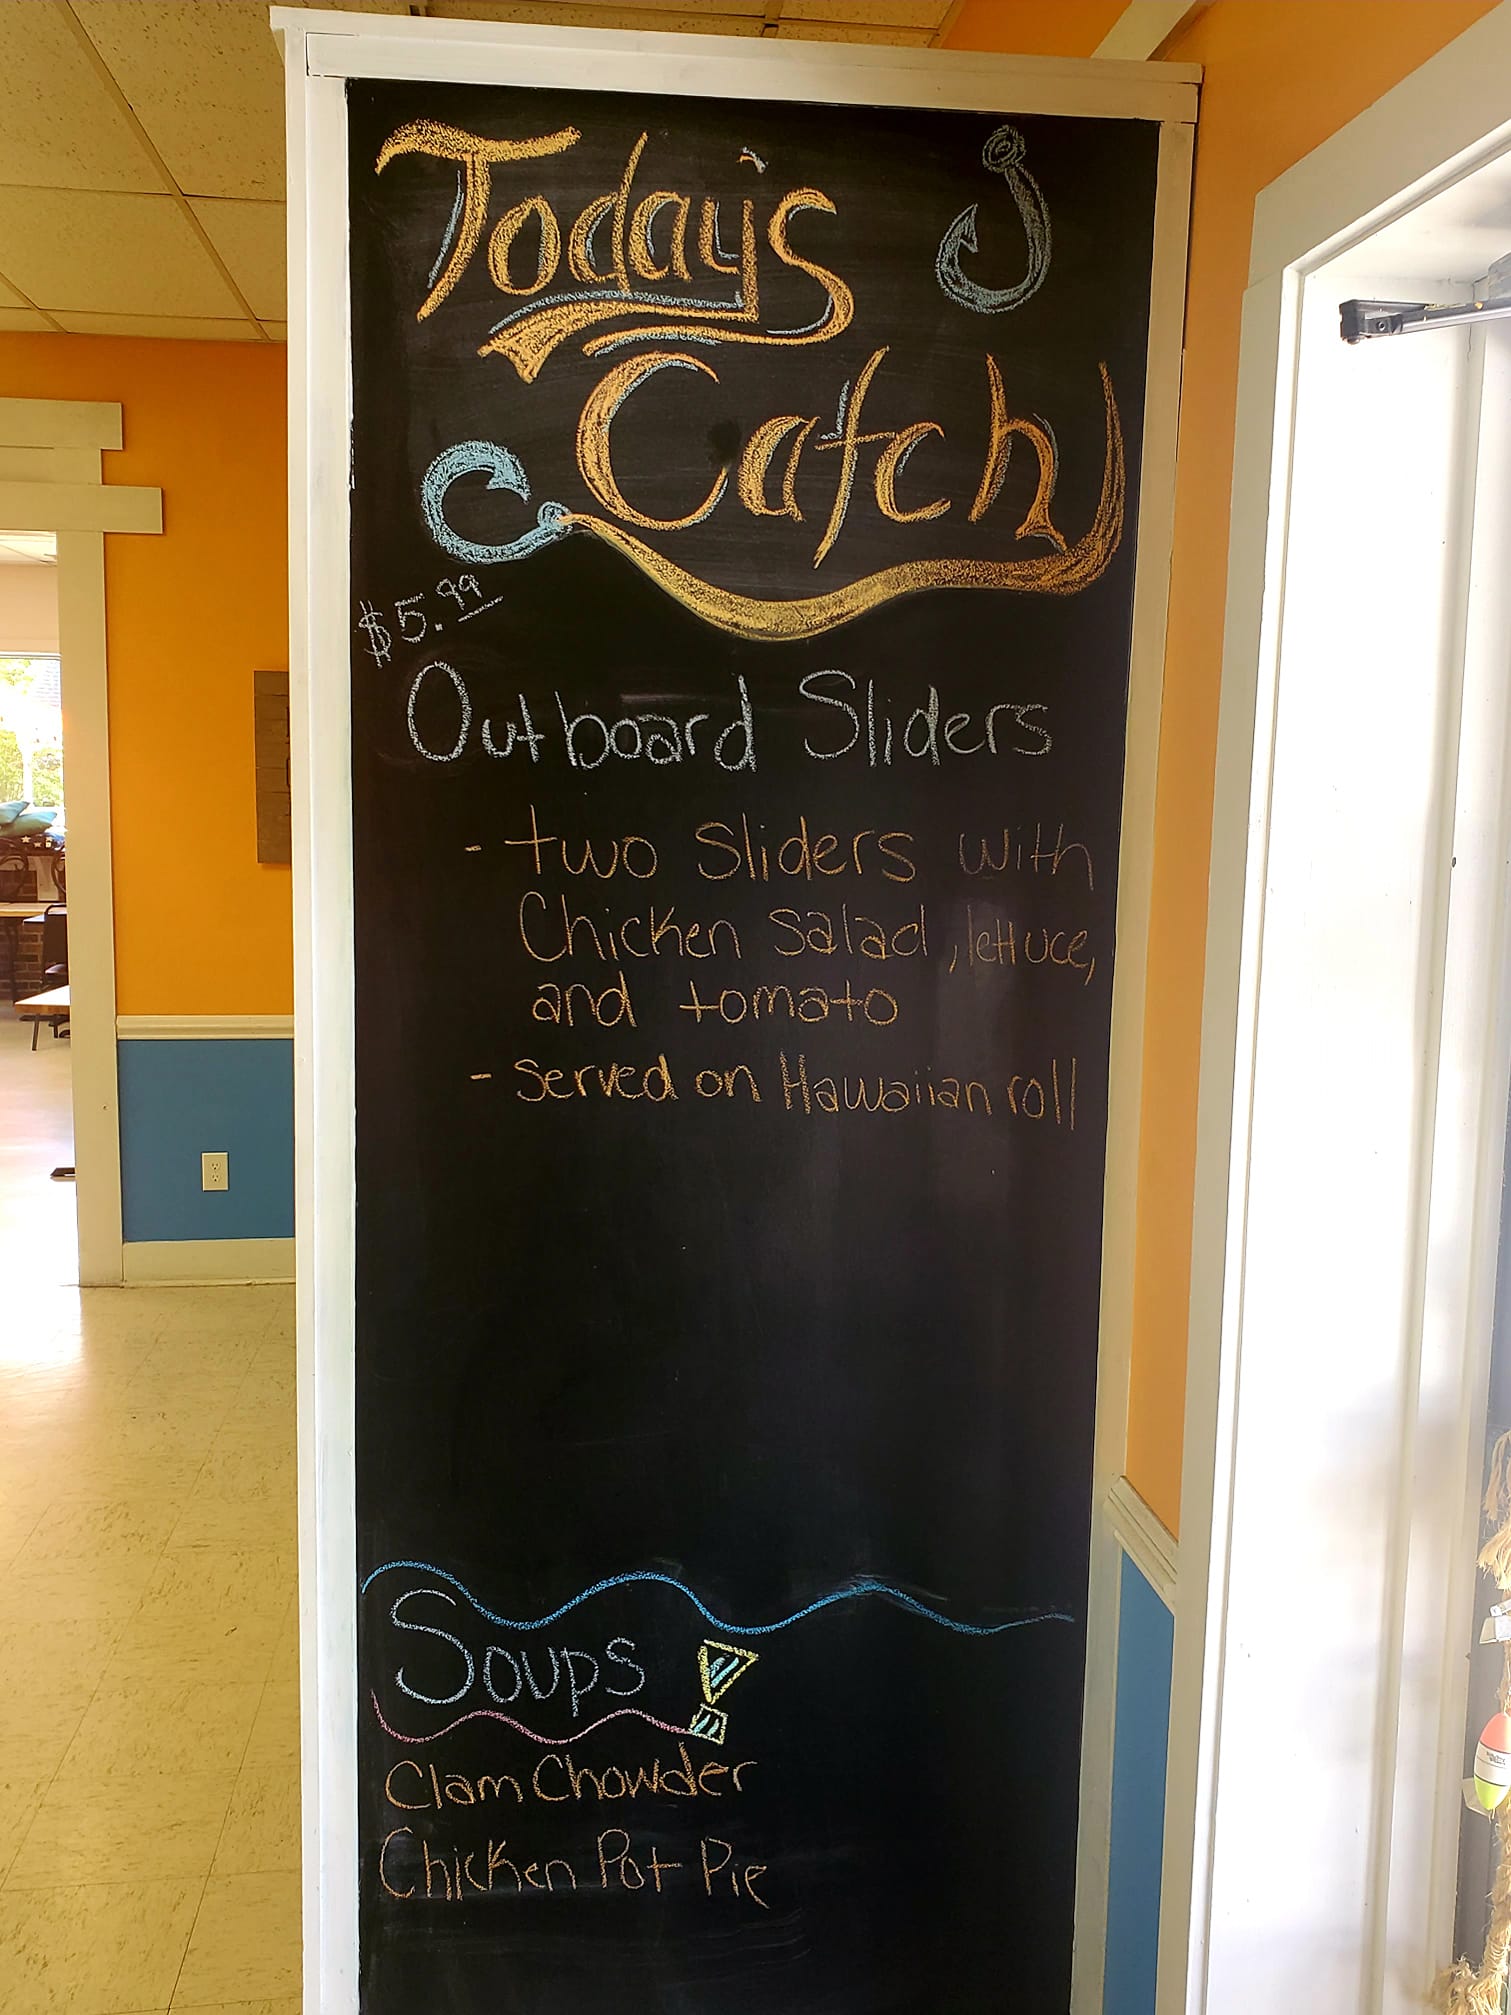 Today's
Catch
$5.99
Outboard Sliders
- two sliders with
Chicken salad, lettuce,
and tomato
- served on Hawaiian roll
Soups
Clam Chowder
Chicken Pot Pie